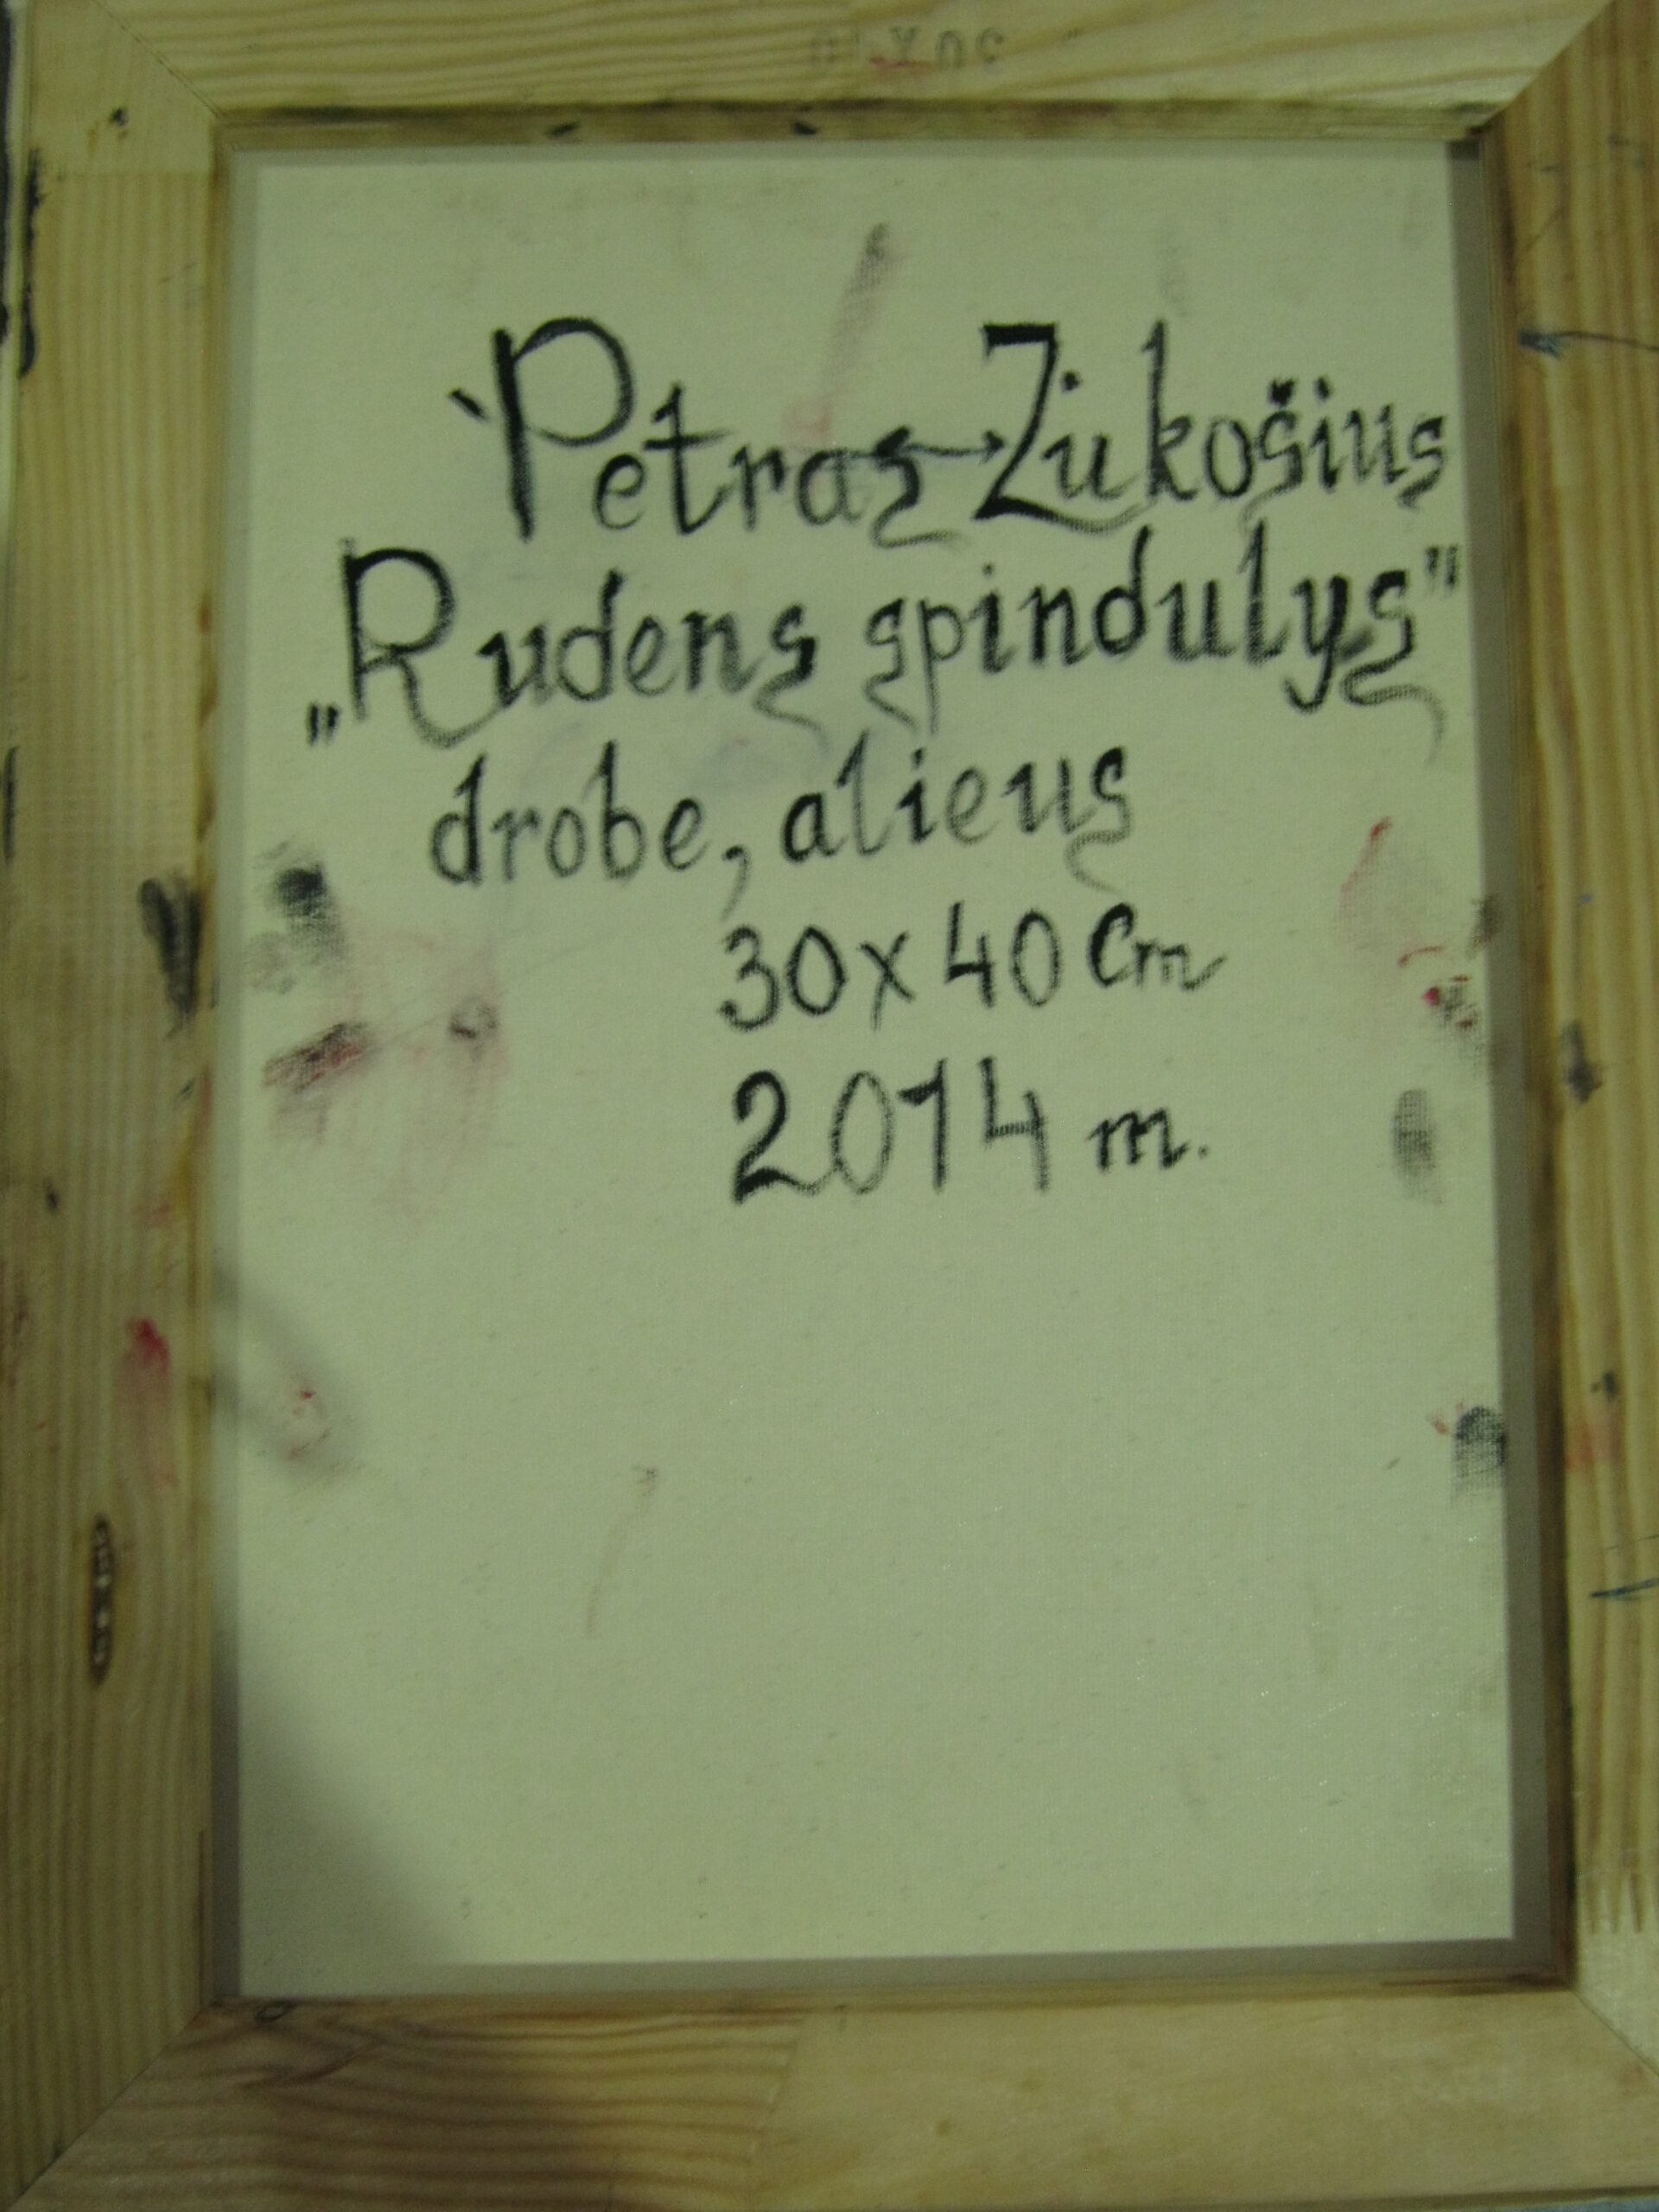 Petras Zukošius
„Rudens spindulys"
drobe, alieus
30x40 cm
2014 m.